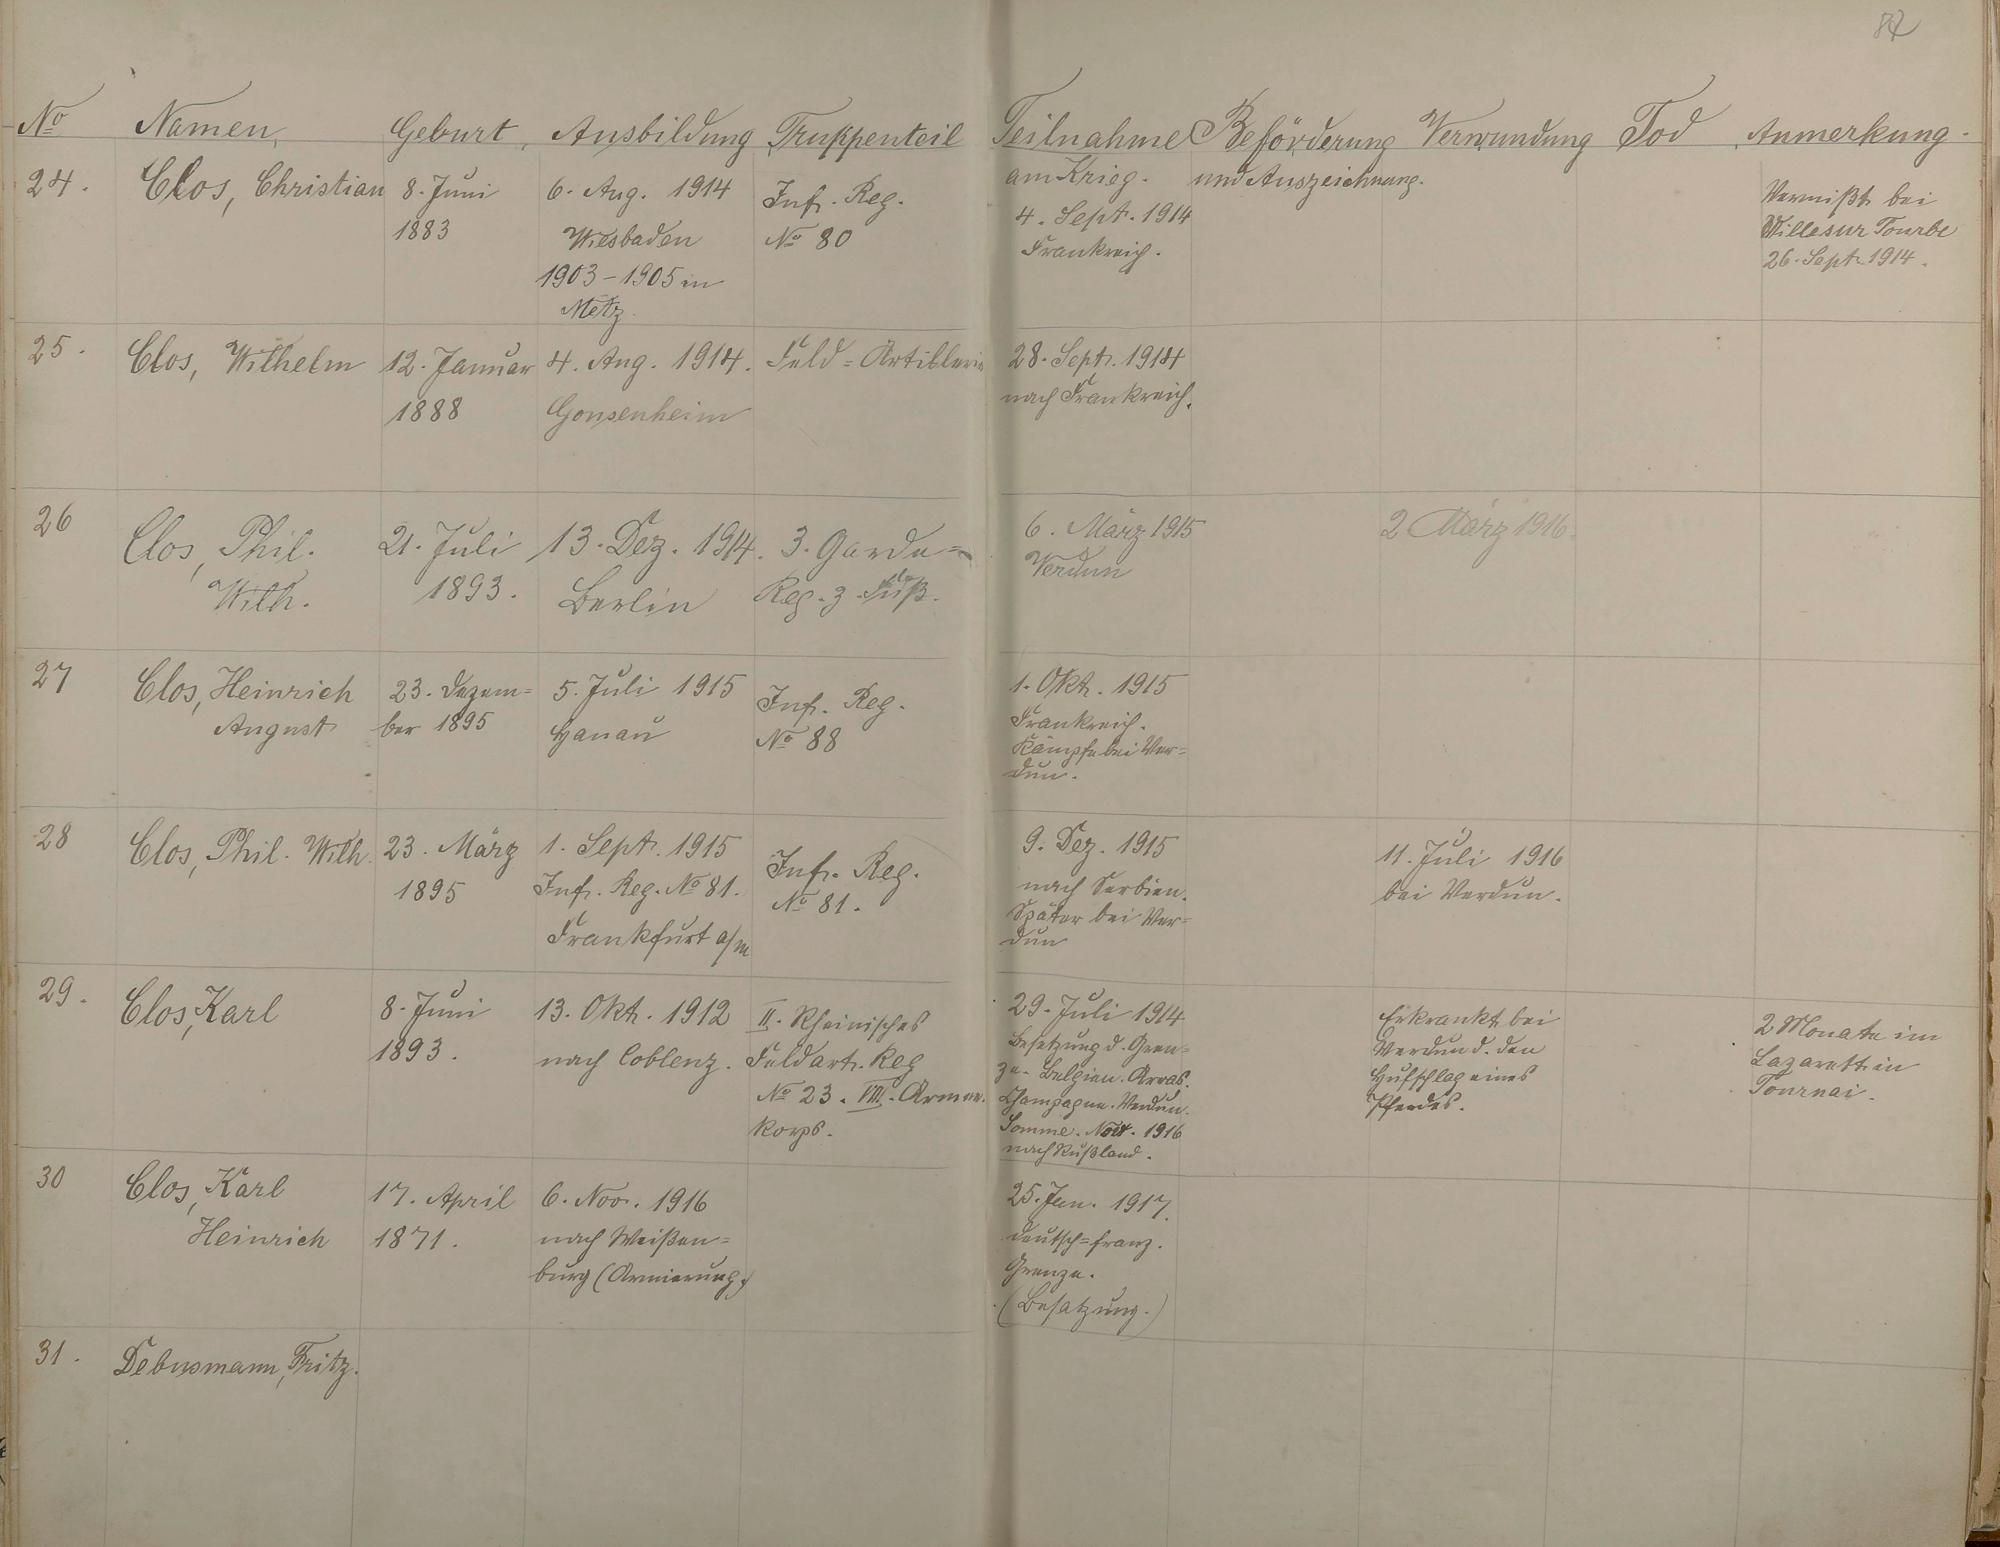 No Namen, Geburt, Ausbildung Truppenteil Teilnahme am Krieg. Beförderung und Auszeichnung. Verwundung Tod Anmerkung.
24. Clos, Christian
8. Juni
1883
6. Aug. 1914
Wiesbaden
1903-1905 in
Metz.
Inf. Reg.
No 80
4. Sept. 1914
Frankreich.
Vermißt bei
Ville sur Tourbe
26. Sept. 1914.
25. Clos, Wilhelm
12. Januar
1888
4. Aug. 1914.
Gonsenheim
Feld=Artillerie
28. Sept. 1914
nach Frankreich.
26 Clos, Phil.
Wilh.
21. Juli
1893.
13. Dez. 1914.
Berlin
3. Garde=
Reg. z. Fuß.
6. März 1915
Verdun
2 März 1916.
27 Clos, Heinrich
August
23. Dezem=
ber 1895
5. Juli 1915
Hanau
Inf. Reg.
No 88
1. Okt. 1915
Frankreich.
Kämpfe bei Ver=
dun.
28 Clos, Phil. Wilh.
23. März
1895
1. Sept. 1915
Inf. Reg. No 81.
Frankfurt a/m
Inf. Reg.
No 81.
9. Dez. 1915
nach Serbien.
Später bei Ver=
dun
11. Juli 1916
bei Verdun.
29. Clos, Karl
8. Juni
1893.
13. Okt. 1912
nach Coblenz.
II. Rheinisches
Feldart. Reg
No 23. VIII. Armee.
Korps.
29. Juli 1914
Besetzung d. Gren=
ze. Belgien. Arras.
Champagne. Verdun.
Somme. Nov. 1916
nach Rußland.
Erkrankt bei
Verdun d. den
Hufschlag eines
Pferdes.
2 Monate im
Lazarett in
Tournai.
30 Clos, Karl
Heinrich
17. April
1871.
6. Nov. 1916
nach Weißen=
burg (Armierung.)
25. Jan. 1917.
deutsch=franz.
Grenze.
(Besatzung.)
31. Debusmann, Fritz.